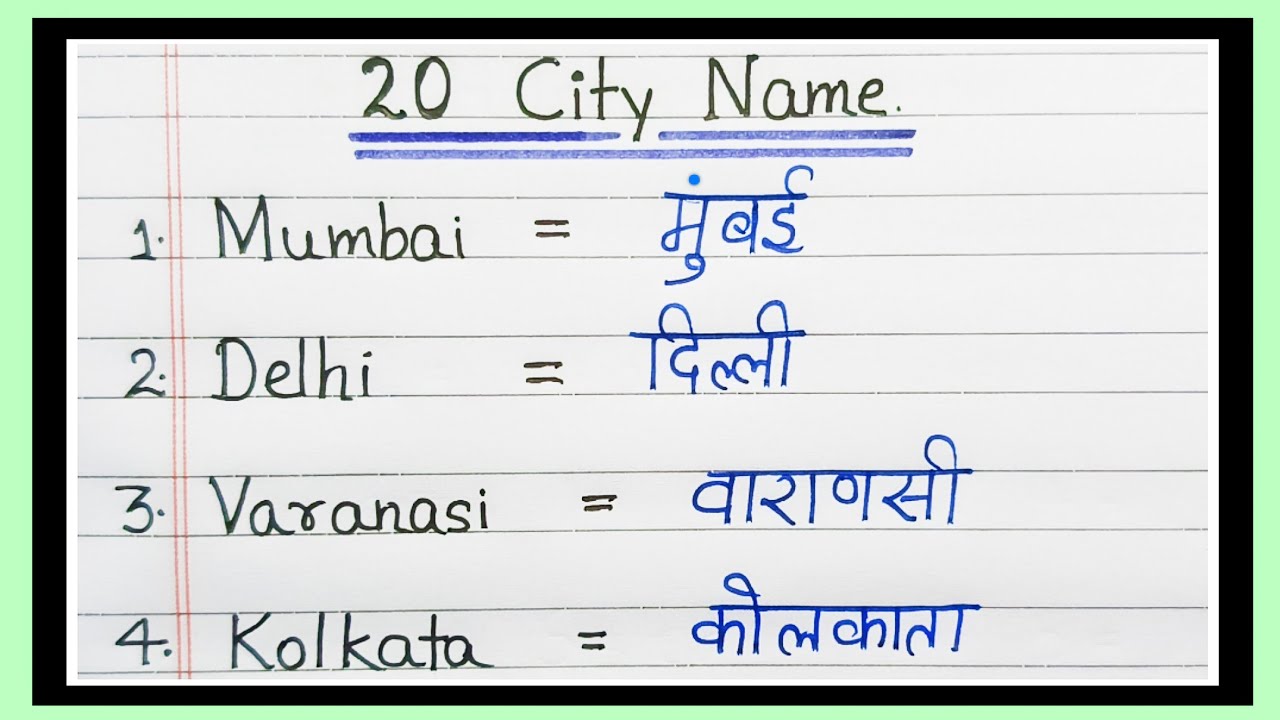 20 City Name.
1. Mumbai = मुंबई
2. Delhi = दिल्ली
3. Varanasi = वाराणसी
4. Kolkata = कोलकाता